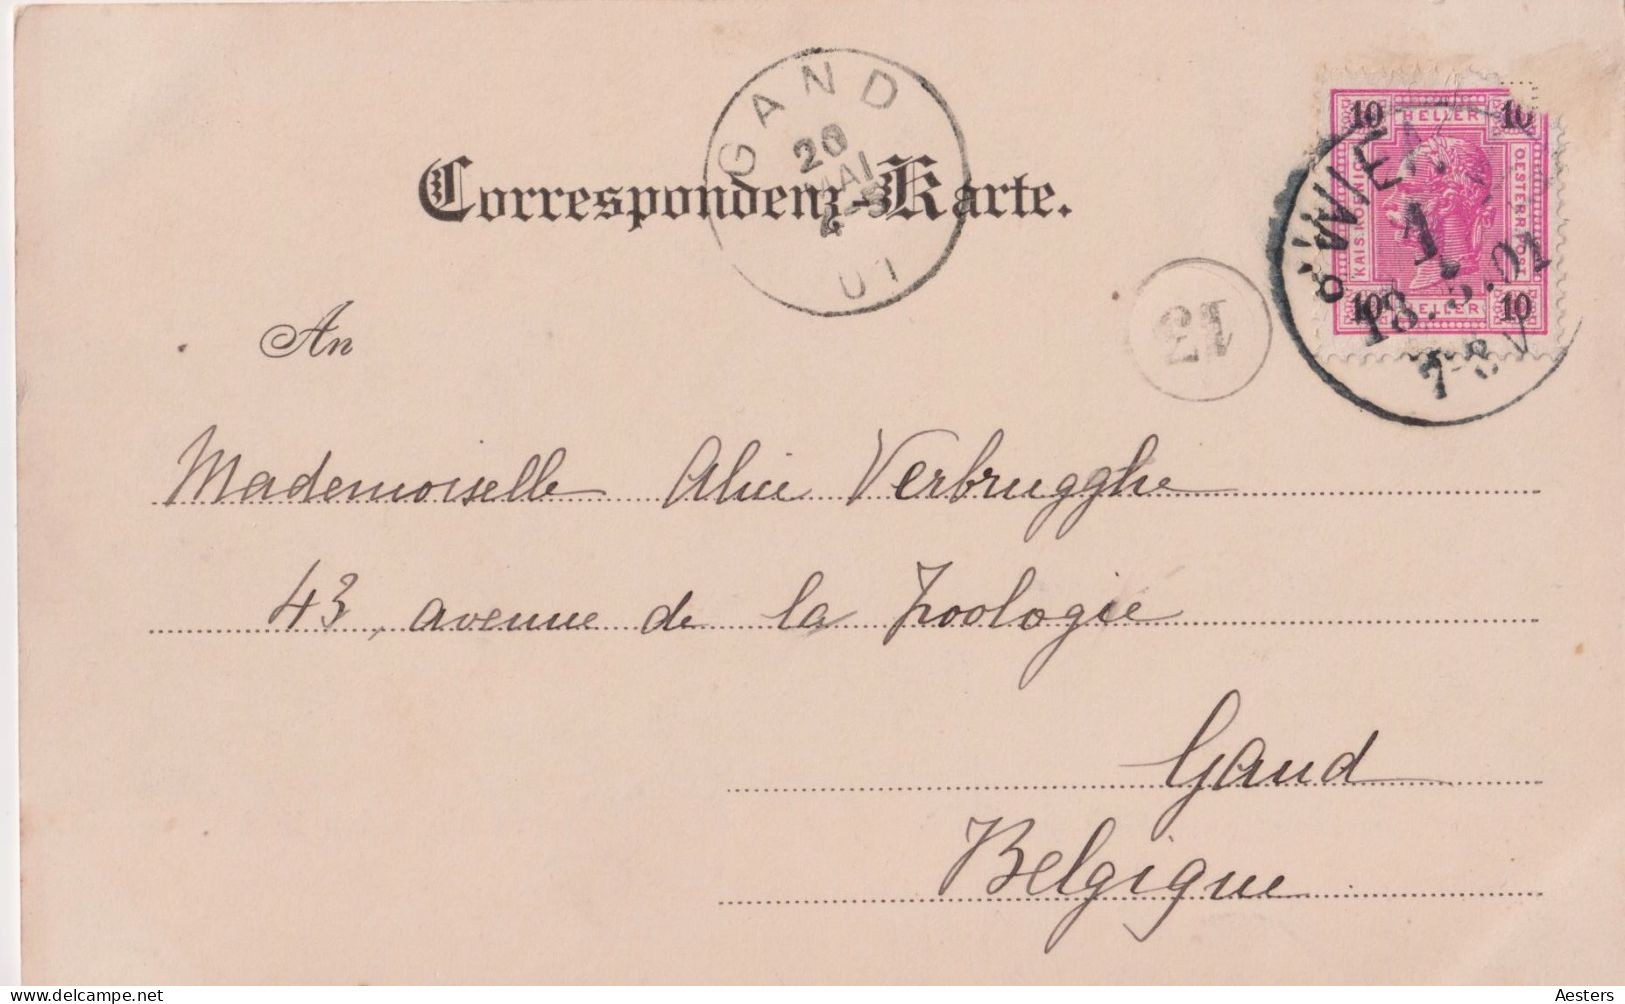 GAND
20
MAI
01
Correspondenz-Karte.
10 HELLER 10
KAIS. KOENIGL. OESTERR. POST.
10 HELLER 10
WIEN
1.
18.5.01
7-8V
13
An
Mademoiselle Alice Verbrugghe
43, avenue de la Zoologie
Gand
Belgique
Aesters